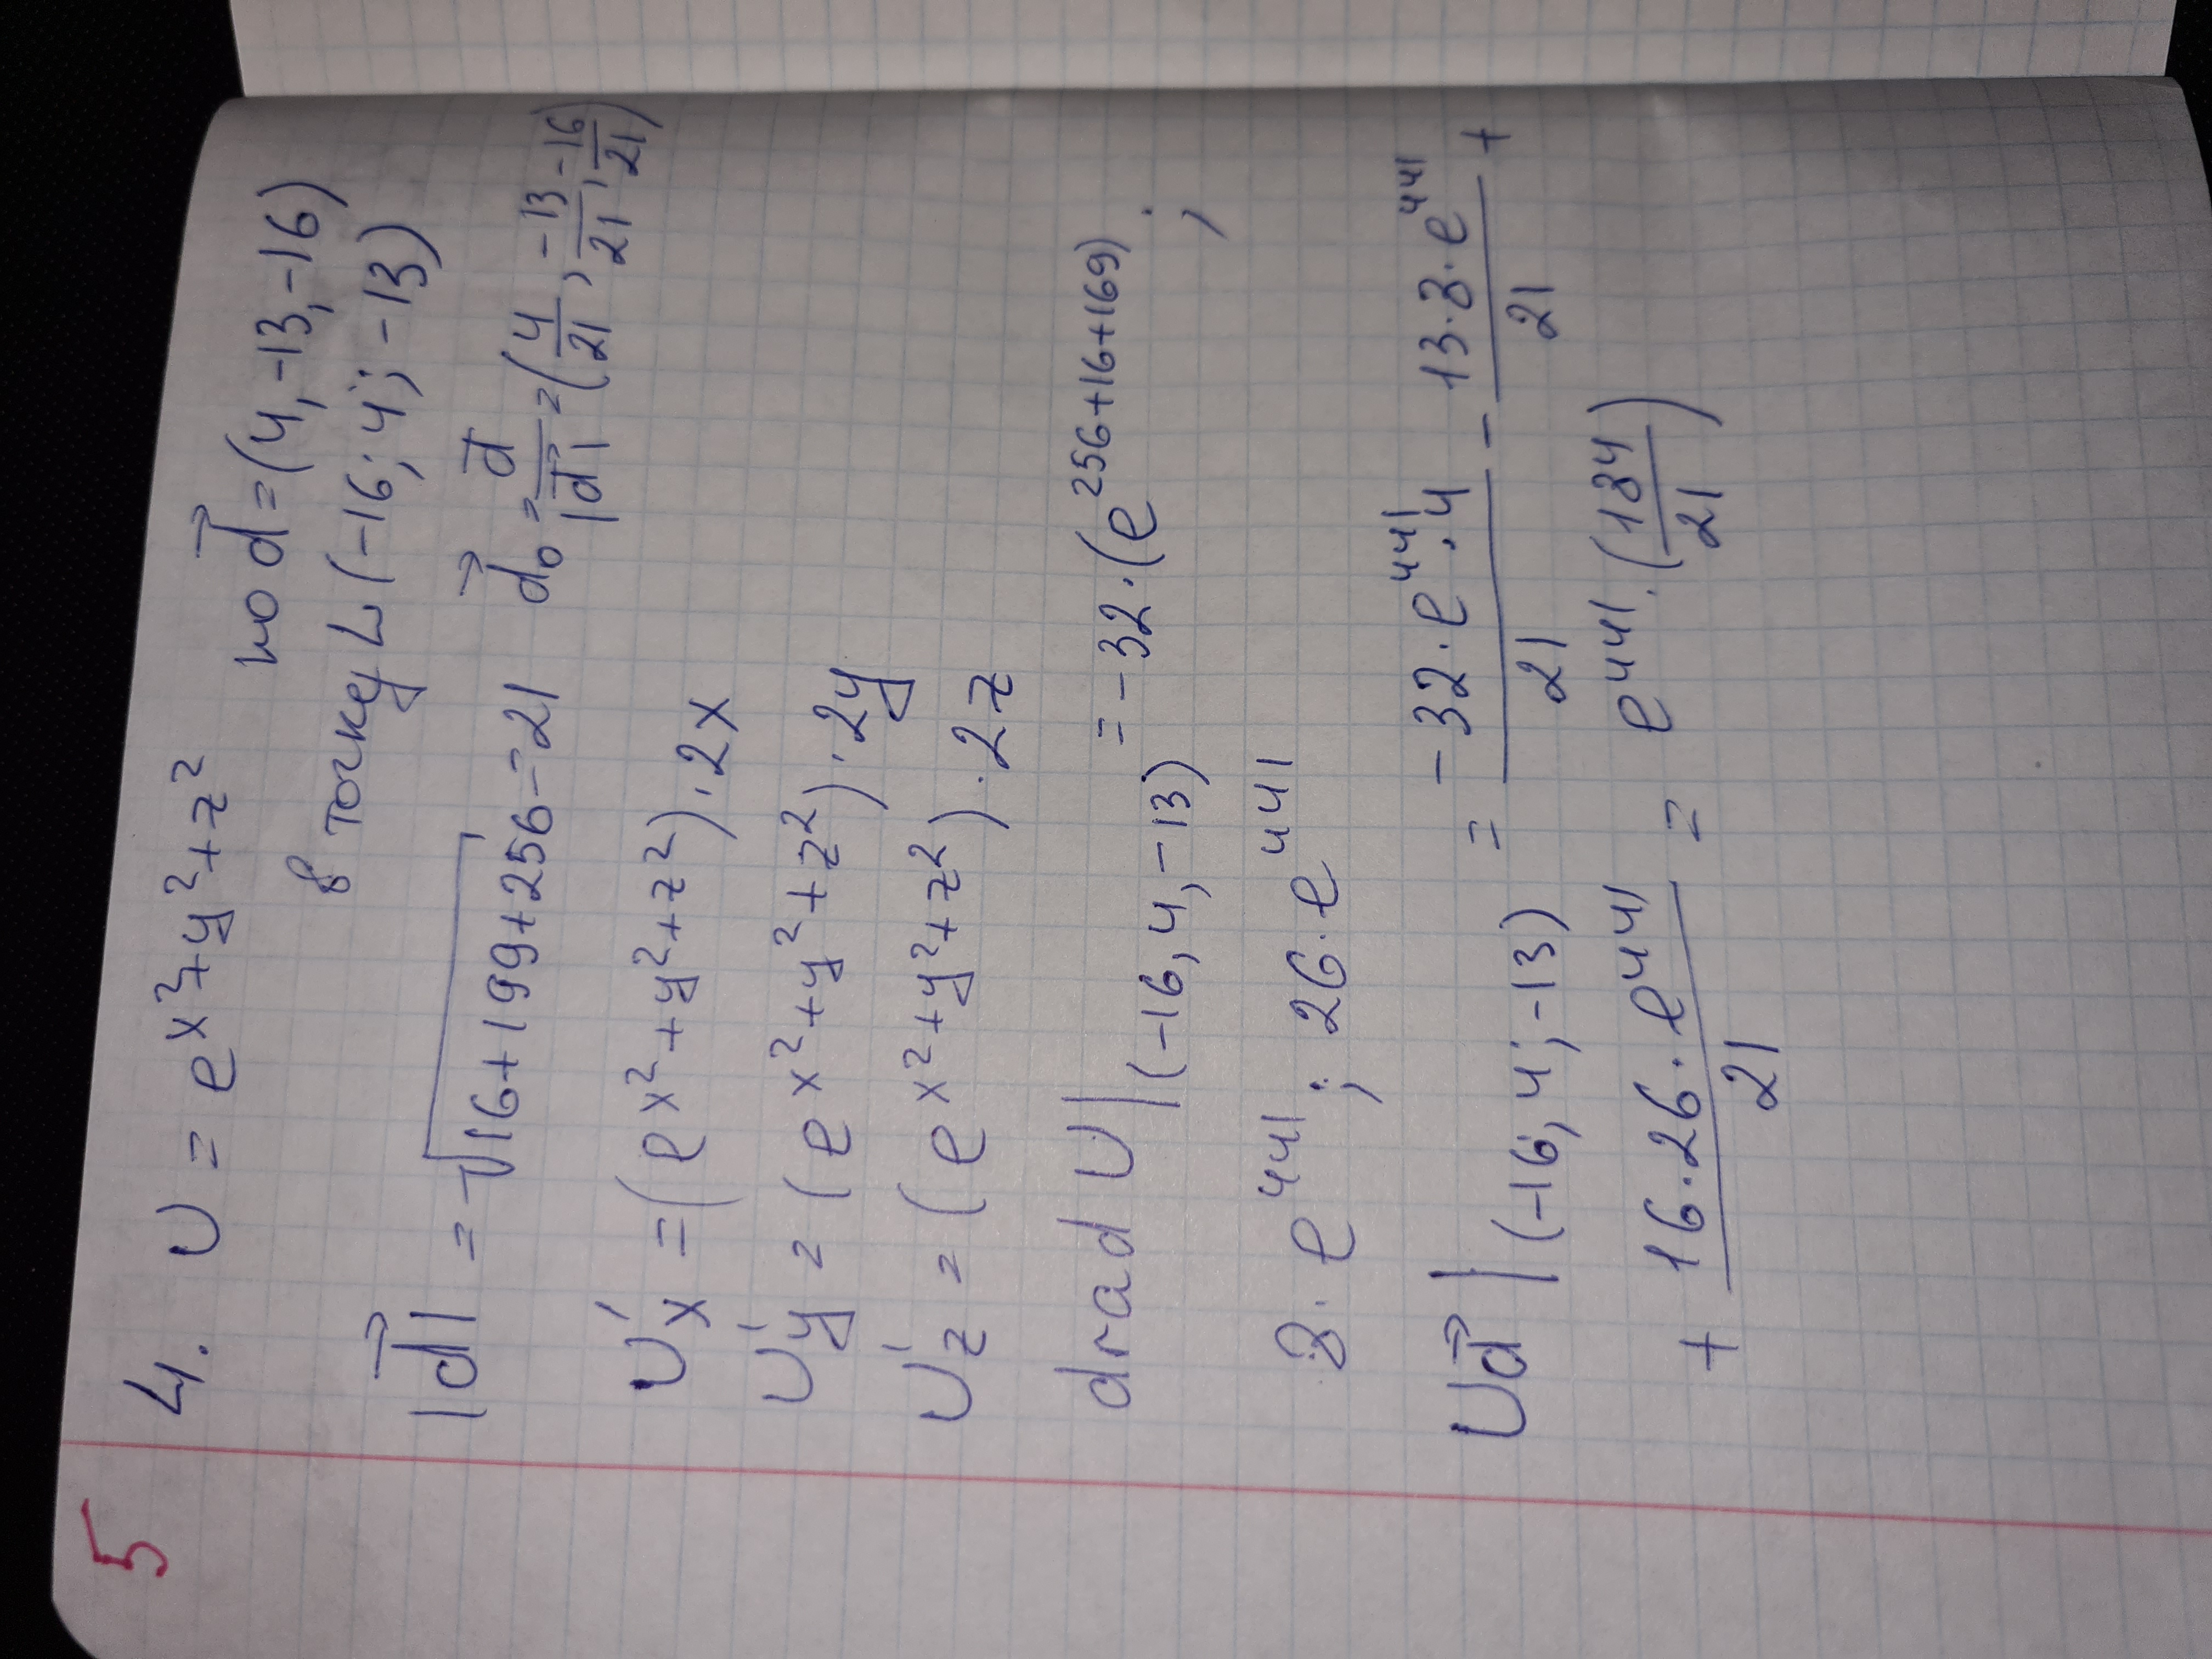 5
4. U = e^{x²+y²+z²}
по d⃗ = (4, -13, -16)
в точку L (-16; 4; -13)
|d⃗| = √(16+199+256) = 21 d⃗₀ = d⃗/|d⃗| = (4/21, -13/21, -16/21)
U'x = (e^{x²+y²+z²}) · 2x
U'y = (e^{x²+y²+z²}) · 2y
U'z = (e^{x²+y²+z²}) · 2z
drad U|(-16, 4, -13) = -32 · (e^{256+16+169});
8 · e^{441}; 26 · e^{441}
Ud⃗ |(-16; 4; -13) = (-32 · e^{441} · 4)/21 - (13 · 8 · e^{441})/21 +
+ (16 · 26 · e^{441})/21 = e^{441} · (184/21)